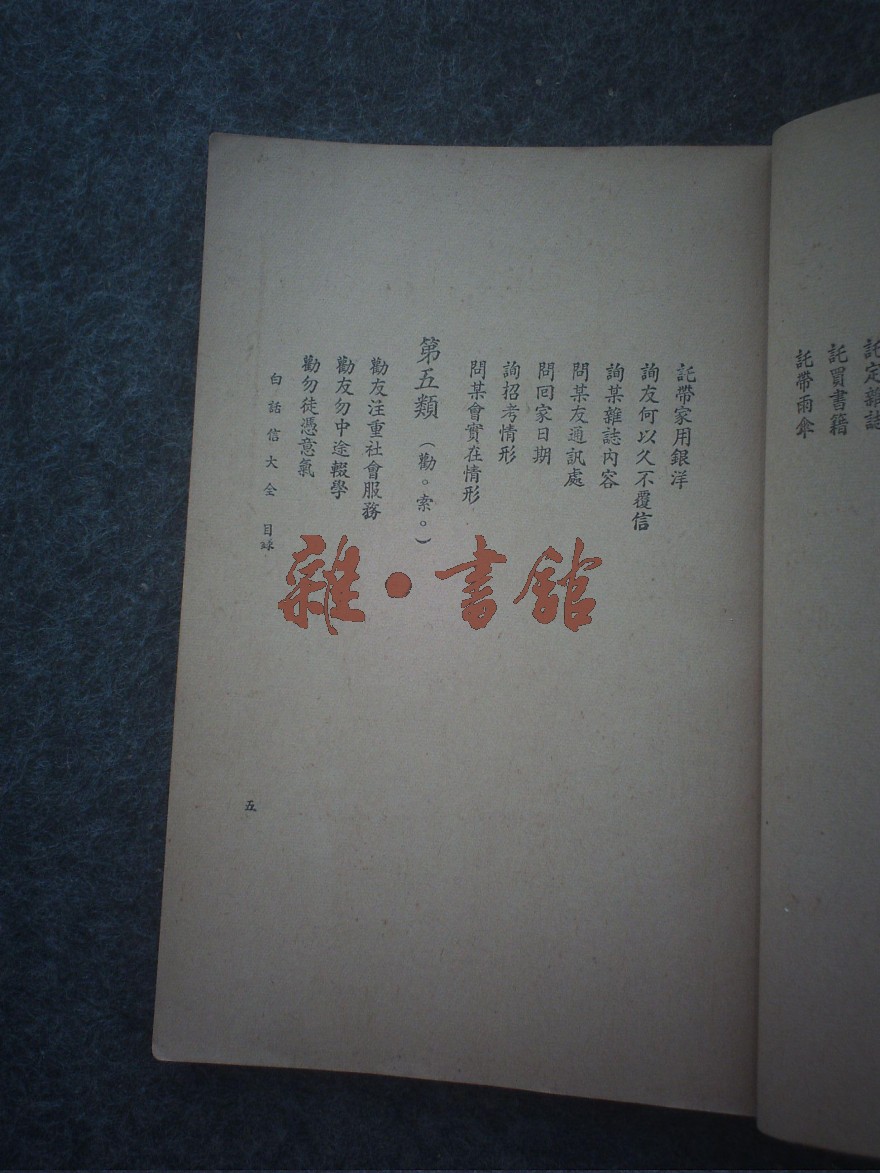 託定雜誌
託買書籍
託帶雨傘
託帶家用銀洋
詢友何以久不覆信
詢某雜誌內容
問某友通訊處
問回家日期
詢招考情形
問某會實在情形
第五類（勸。索。）
勸友注重社會服務
勸友勿中途輟學
勸勿徒憑意氣
白話信大全 目錄
五
雜·書館